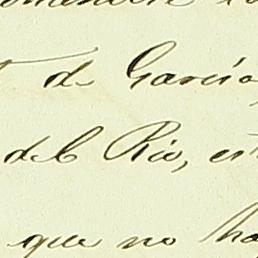 de García
del Rio, est
que no ha